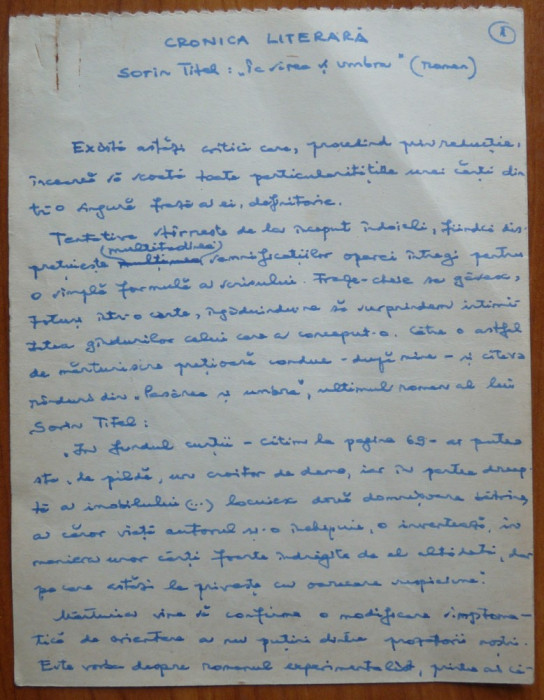 1
CRONICA LITERARĂ
Sorin Titel: „Pasărea și umbra” (roman)
Există astăzi critici care, procedînd prin reducție,
încearcă să scoată toate particularitățile unei cărți din-
tr-o singură frază a ei, definitorie.
Tentativa stîrnește de la început îndoieli, fiindcă dis-
prețuiește mulțimea (multitudinea) semnificațiilor operei întregi pentru
o simplă formulă a scrisului. Fraze-cheie se găsesc,
totuși într-o carte, îngăduindu-ne să surprindem intimi-
tatea gîndurilor celui care a conceput-o. Către o astfel
de mărturisire prețioasă conduc - după mine - și cîteva
rînduri din „Pasărea și umbra”, ultimul roman al lui
Sorin Titel:
„În fundul curții - citim la pagina 69 - ar putea
sta, de pildă, un croitor de dame, iar în partea dreap-
tă a imobilului (...) locuiesc două domnișoare bătrîne,
a căror viață autorul și-o închipuie, o inventează, în
maniera unor cărți foarte îndrăgite de el altădată, dar
pe care astăzi le privește cu oarecare suspiciune.”
Mărturia vine să confirme o modificare simptoma-
tică de orientare a nu puțini dintre prozatorii noștri.
Este vorba despre romanul experimentalist, printre ai că-